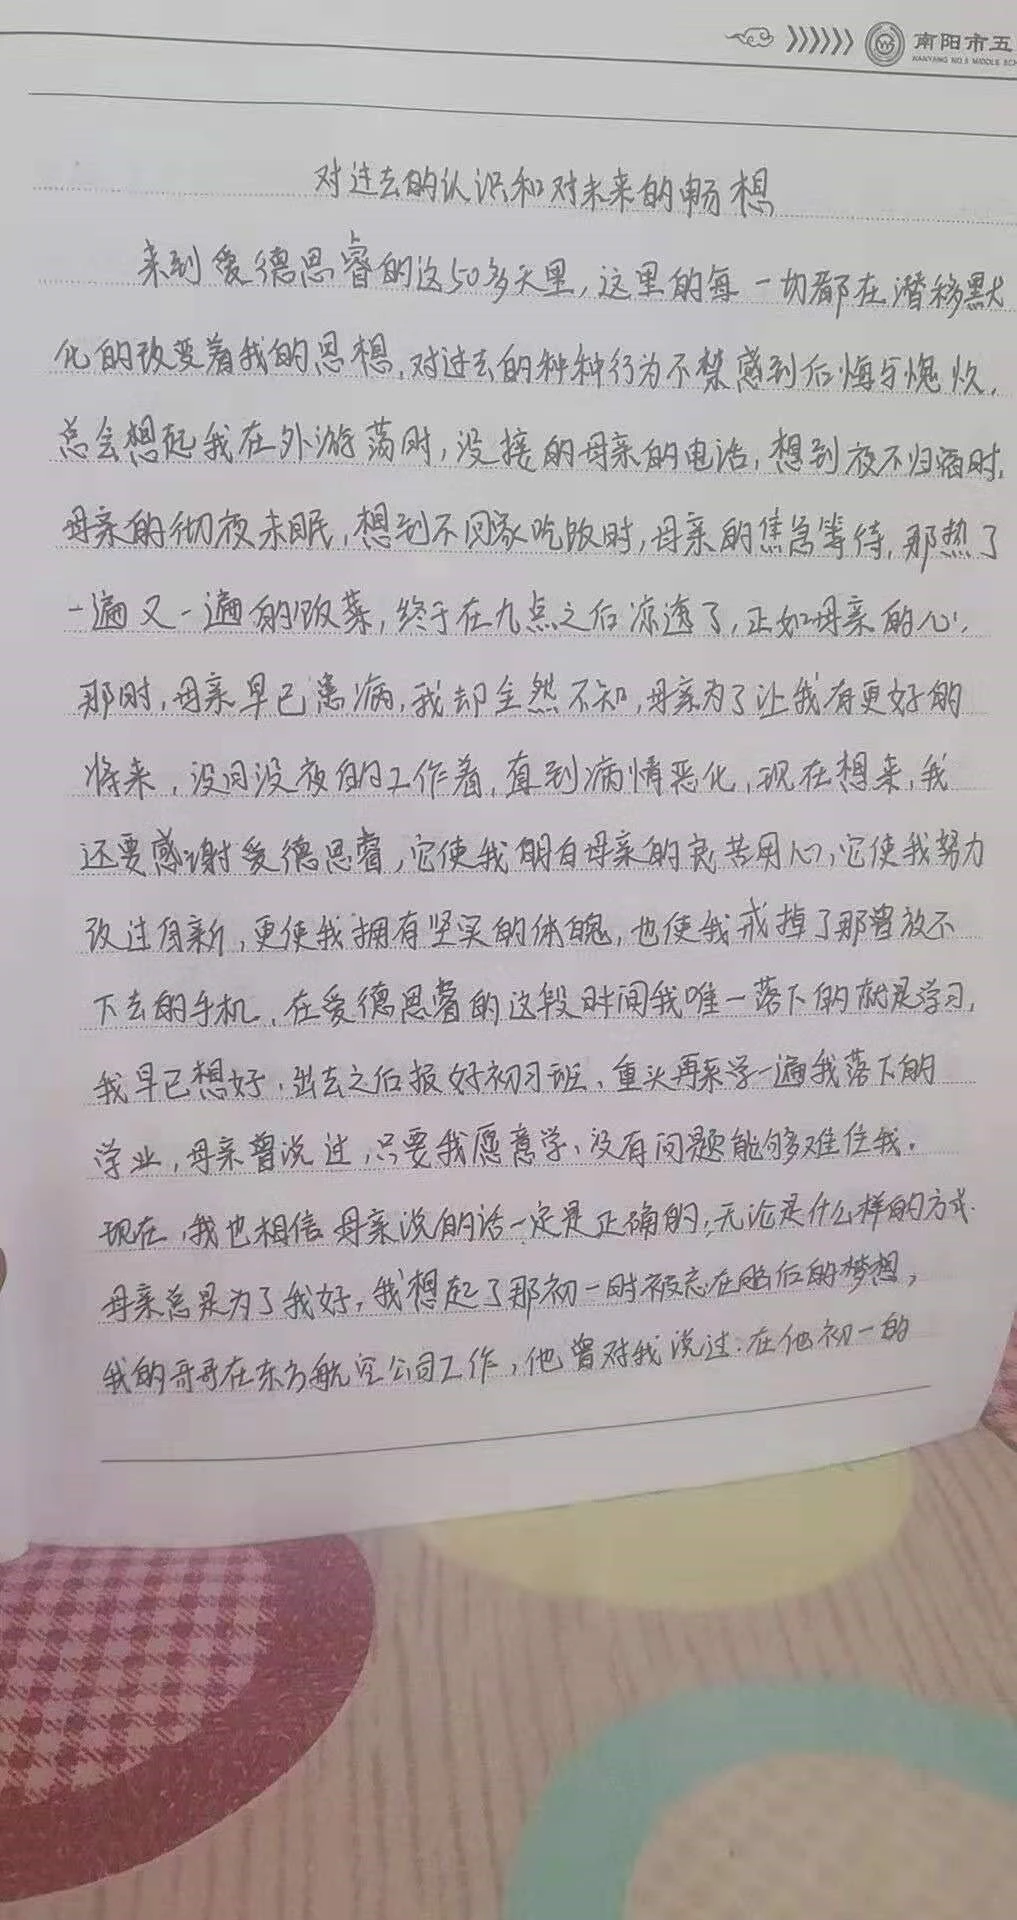 南阳市五
WANYANG NO.5 MIDDLE SCH
对过去的认识和对未来的畅想
来到爱德思睿的这50多天里,这里的每一切都在潜移默
化的改变着我的思想,对过去的种种行为不禁感到后悔与愧疚,
总会想起我在外游荡时,没接的母亲的电话,想到夜不归宿时,
母亲的彻夜未眠,想到不回家吃饭时,母亲的焦急等待,那热了
一遍又一遍的饭菜,终于在九点之后凉透了,正如母亲的心,
那时,母亲早已患病,我却全然不知,母亲为了让我有更好的
将来,没日没夜的工作着,直到病情恶化,现在想来,我
还要感谢爱德思睿,它使我明白母亲的良苦用心,它使我努力
改过自新,更使我拥有坚实的体魄,也使我戒掉了那曾放不
下去的手机,在爱德思睿的这段时间我唯一落下的就是学习,
我早已想好,出去之后报好初习班,重头再来学一遍我落下的
学业,母亲曾说过,只要我愿意学,没有问题能够难住我。
现在,我也相信母亲说的话一定是正确的,无论是什么样的方式
母亲总是为了我好,我想起了那初一时被忘在脑后的梦想,
我的哥哥在东方航空公司工作,他曾对我说过:在他初一的